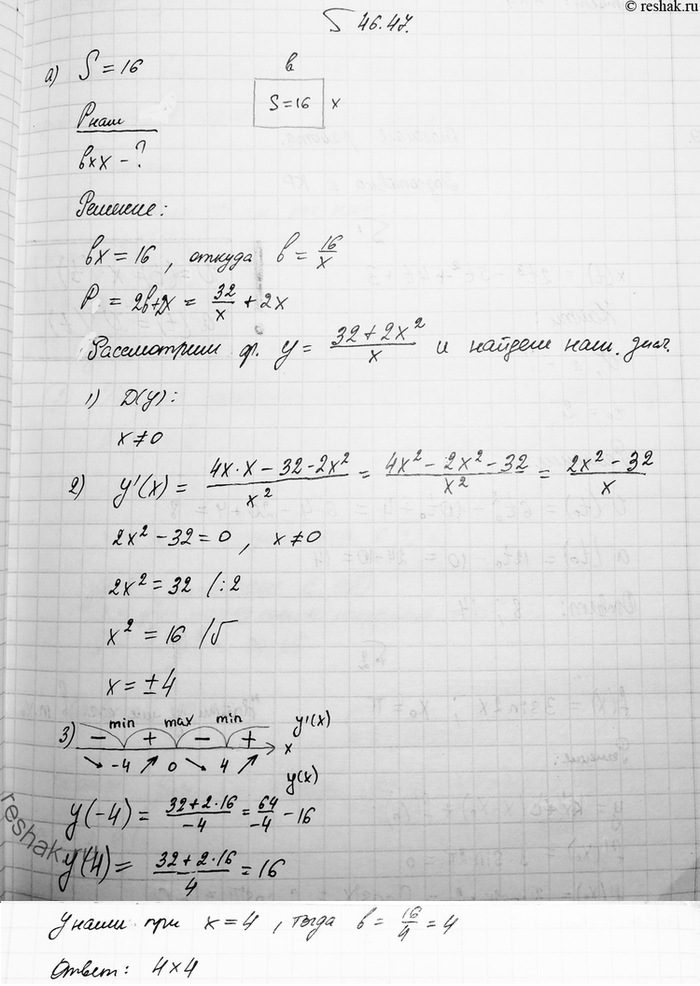 © reshak.ru
§ 46.47.
а) S = 16
в
S=16 x
Pнаим
вхх - ?
Решение:
вх = 16, откуда в = 16/x
P = 2в+2x = 32/x + 2x
Рассмотрим ф. y = (32+2x²)/x и найдем наим. знач.
1) D(y):
x ≠ 0
2) y'(x) = (4x·x - 32 - 2x²)/x² = (4x² - 2x² - 32)/x² = (2x² - 32)/x
2x² - 32 = 0, x ≠ 0
2x² = 32 /:2
x² = 16 /√
x = ±4
min max min y'(x)
3) − + − + x
↘ -4 ↗ 0 ↘ 4 ↗ y(x)
y(-4) = (32+2·16)/-4 = 64/-4 - 16
y(4) = (32+2·16)/4 = 16
reshak
yнаим при x = 4, тогда в = 16/4 = 4
Ответ: 4×4